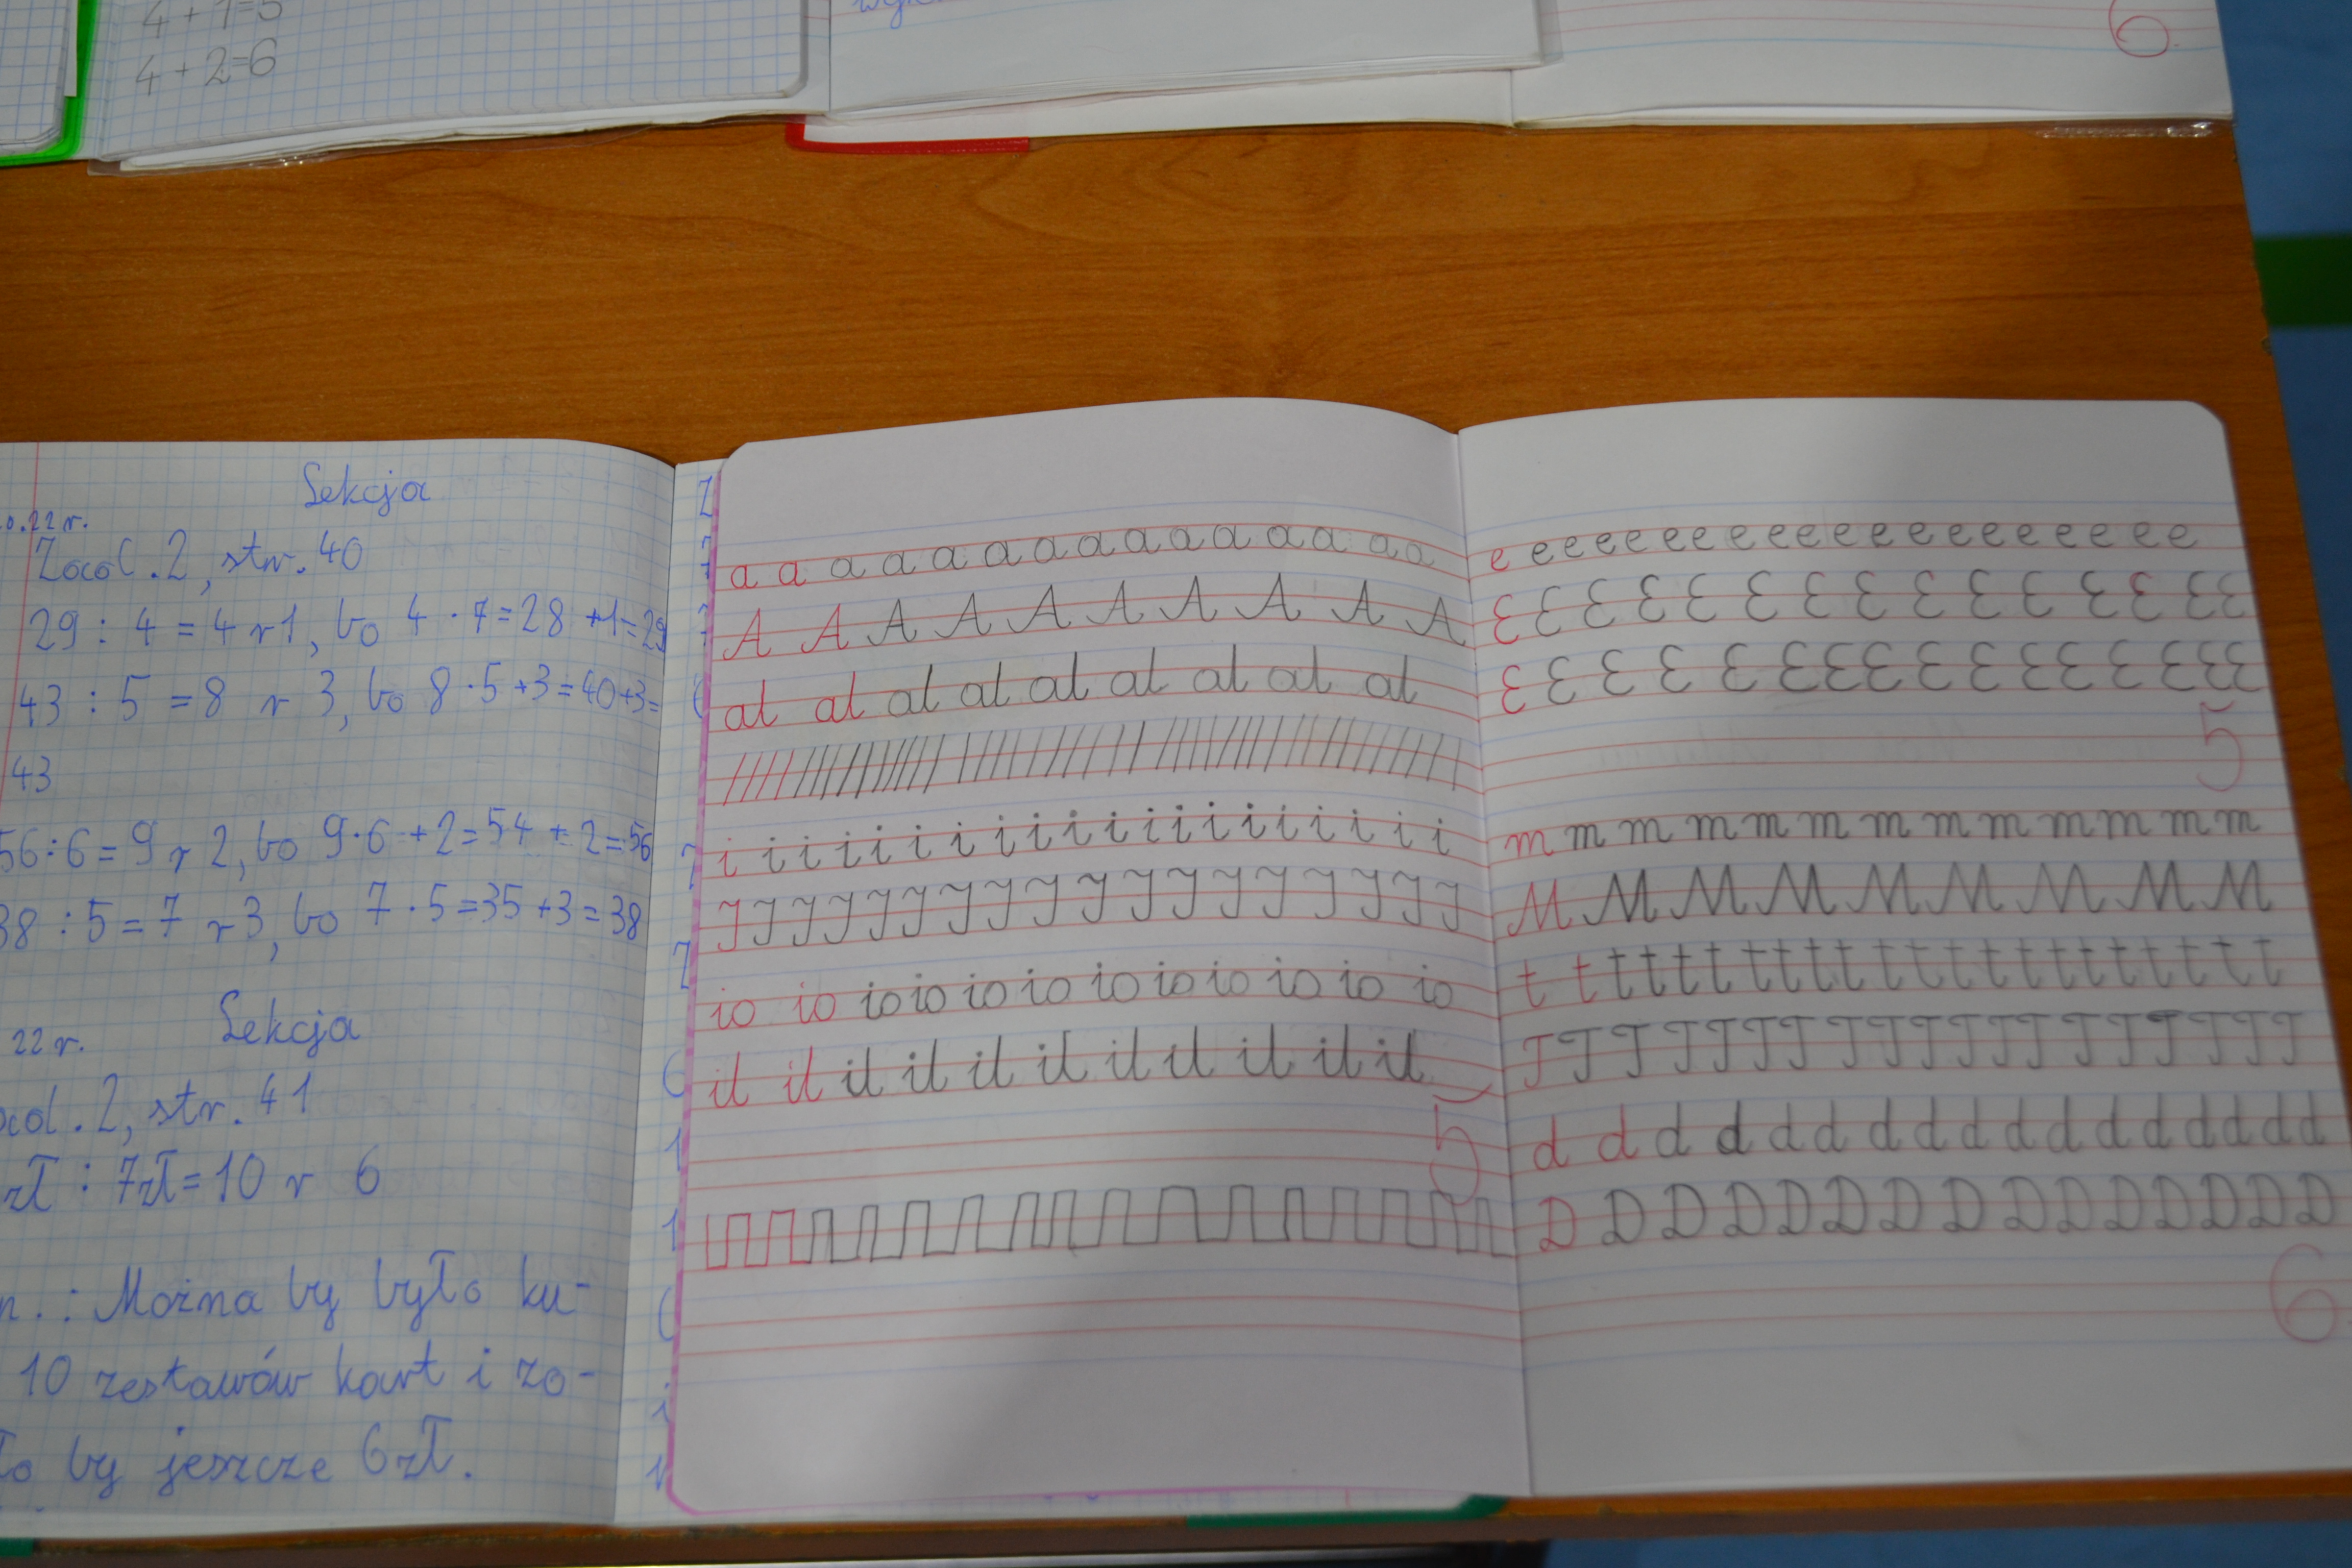 4+1=5
4+2=6
6
Lekcja
.22 r.
Zad.2, str. 40
29 : 4 = 4 r1, bo 4 · 7 = 28 +1=29
43 : 5 = 8 r 3, bo 8 · 5 +3 = 40+3=
43
56:6=9 r 2, bo 9·6 +2=54 +2=56
38 : 5 = 7 r3, bo 7 · 5 =35 +3=38
Lekcja
22 r.
ad.2, str. 41
zł : 7zł=10 r 6
: Można by było ku-
10 zestawów kart i zo-
ło by jeszcze 6zł.
a a a a a a a a a a a a a a a
A A A A A A A A A A
at at at at at at at at at
i i i i i i i i i i i i i i i i i i i i
J J J J J J J J J J J J J J J J J
io io io io io io io io io io io io
il il il il il il il il il il il
5
e e e e e e e e e e e e e e e e e e e
Ɛ Ɛ Ɛ Ɛ Ɛ Ɛ Ɛ Ɛ Ɛ Ɛ Ɛ Ɛ Ɛ Ɛ Ɛ
Ɛ Ɛ Ɛ Ɛ Ɛ Ɛ Ɛ Ɛ Ɛ Ɛ Ɛ Ɛ Ɛ Ɛ Ɛ Ɛ Ɛ
5
m m m m m m m m m m m m m
M M M M M M M M M
t t t t t t t t t t t t t t t t t t t t t
T T T T T T T T T T T T T T T T T
d d d d d d d d d d d d d d d d
D D D D D D D D D D D D D D D
6